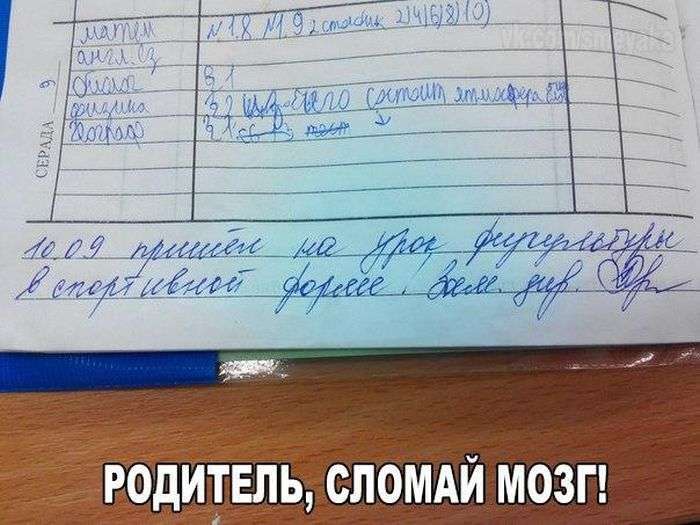 матем №1.8 №1.9 2 столбик 2)4)6)8)10)
англ. яз
биолог § 1
физика § 2 из чего состоит атмосфера
географ § 1.
СЕРАДА 9
10.09 пришёл на урок физкультуры
в спортивной форме. Зам. дир.
РОДИТЕЛЬ, СЛОМАЙ МОЗГ!